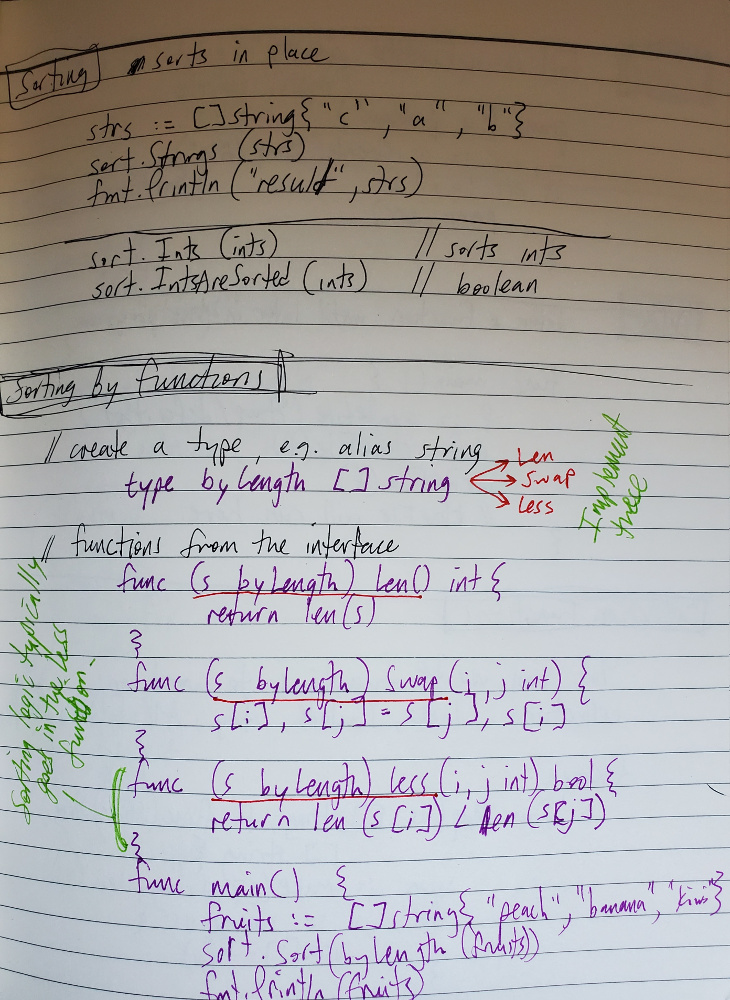 Sorting
sorts in place
strs := []string{ "c" , "a" , "b" }
sort.Strings (strs)
fmt.Println ("result", strs)
sort. Ints (ints) // sorts ints
sort. IntsAreSorted (ints) // boolean
Sorting by functions
// create a type, e.g. alias string
type byLength [] string
Len
Swap
Less
Implement
these
// functions from the interface
func (s byLength) Len() int {
return len(s)
}
func (s byLength) Swap (i, j int) {
s[i], s[j] = s[j], s[i]
}
Sorting logic typically
goes in the less
function.
func (s byLength) less (i, j int) bool {
return len (s[i]) < len (s[j])
}
func main() {
fruits := []string{ "peach", "banana", "kiwi"}
sort. Sort (byLength (fruits))
fmt.Println (fruits)